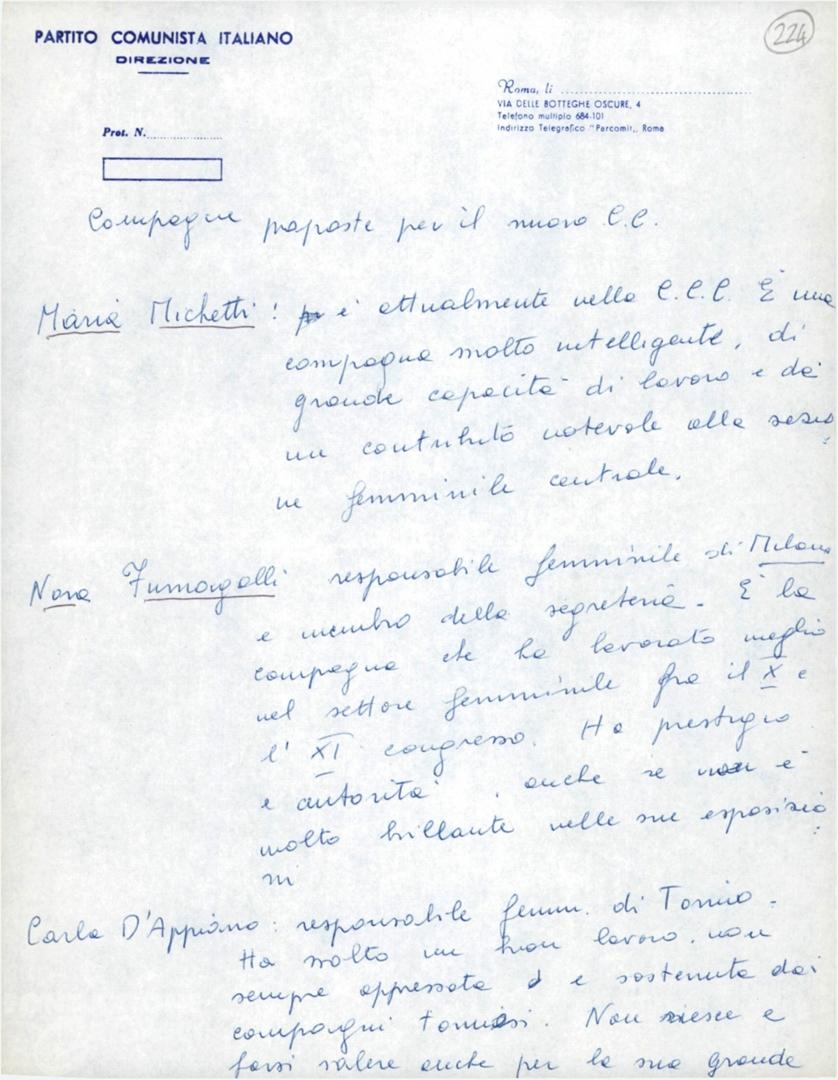 PARTITO COMUNISTA ITALIANO
DIREZIONE
224
Roma, li
VIA DELLE BOTTEGHE OSCURE, 4
Telefono multiplo 684-101
Indirizzo Telegrafico "Parcomit„ Roma
Prot. N.
Compagne proposte per il nuovo C.C.
Maria Michetti: è attualmente nella C.C.C. È una
compagna molto intelligente, di
grande capacità di lavoro e dà
un contributo notevole alla sezio
ne femminile centrale.
Nora Fumagalli responsabile femminile di Milano
e membro della segreteria. È la
compagna che ha lavorato meglio
nel settore femminile fra il X e
l' XI congresso. Ha prestigio
e autorità, anche se non è
molto brillante nelle sue esposizio
ni
Carla D'Appiano: responsabile femm. di Torino.
Ha svolto un buon lavoro, non
sempre apprezzata e sostenuta dai
compagni torinesi. Non riesce a
farsi valere anche per la sua grande